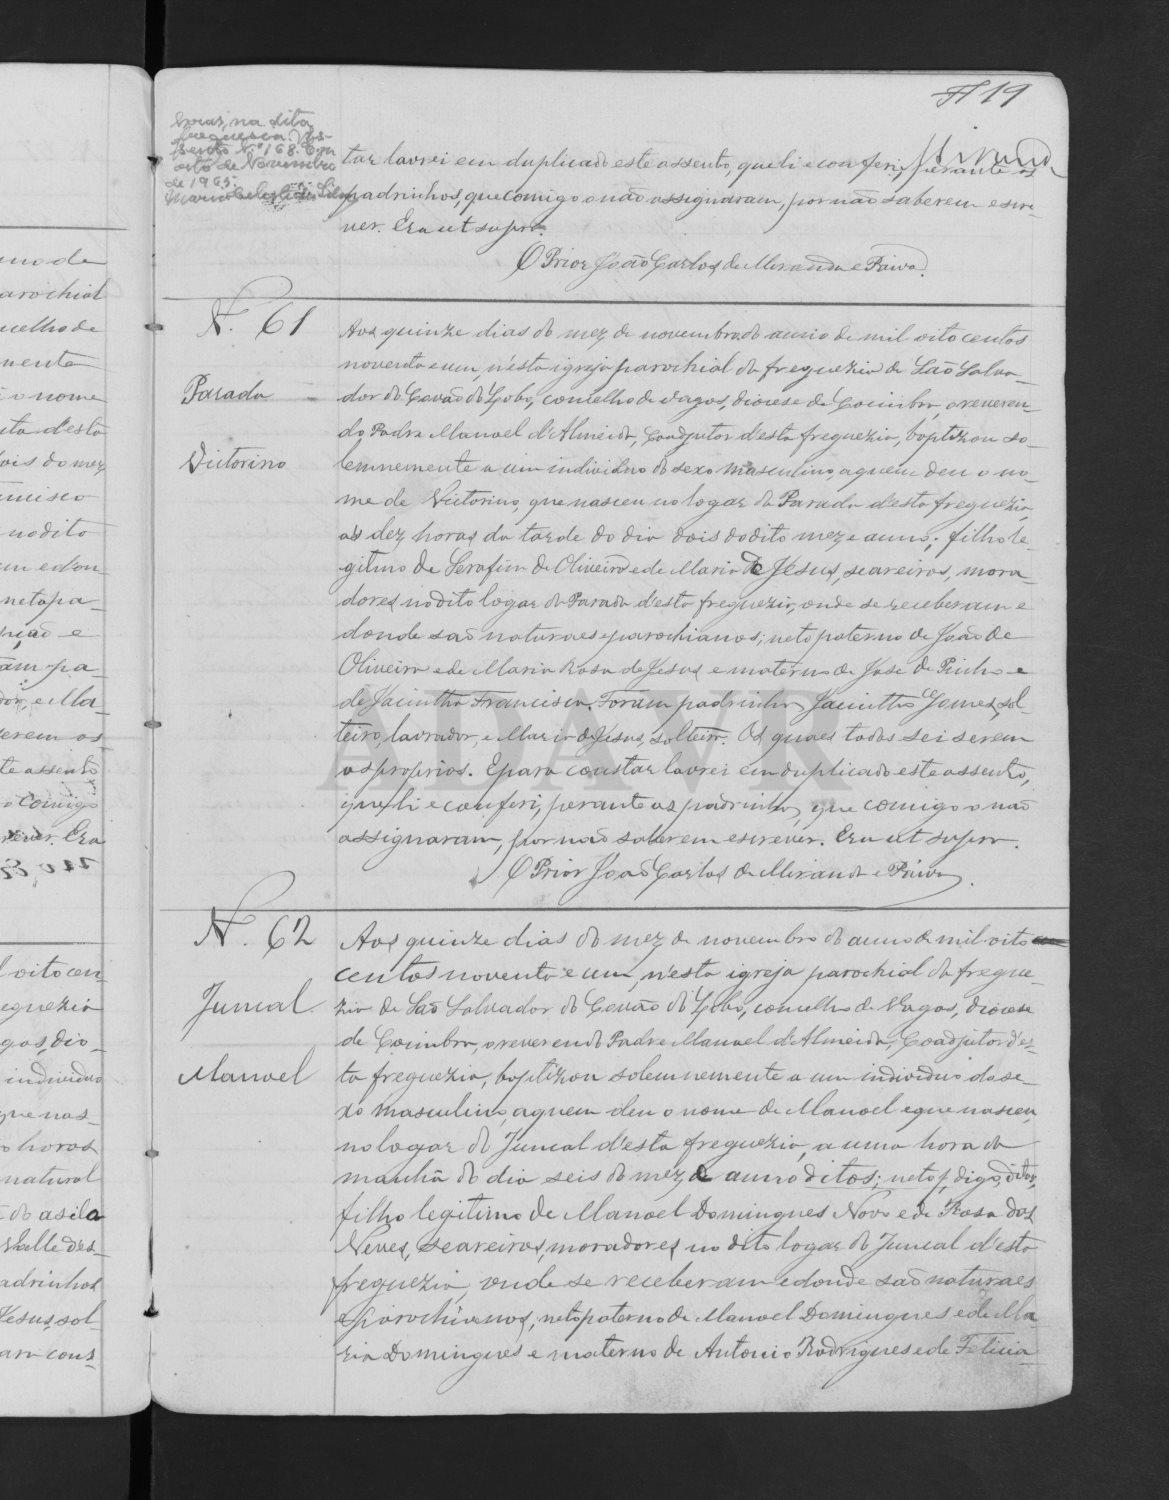 Fl 19
horas, na dita
freguesia. As-
sento N.º 168. Em
oito de Novembro
de 1965.
tar lavrei em duplicado este assento, que li e conferi, perante os
padrinhos, que comigo o não assignaram, por não saberem escre-
ver. Era ut supra.
O Prior João Carlos de Miranda e Paiva.
N. 61
Parada
Victorino
Aos quinze dias do mez de novembro do anno de mil oito centos
noventa e um, n'esta igreja parochial da freguezia de São Salva-
dor do Covão do Lobo, concelho de Vagos, diocese de Coimbra, o reveren-
do Padre Manoel d'Almeida, Coadjutor d'esta freguezia, baptizou so-
lemnemente a um individuo do sexo masculino, a quem deu o no-
me de Victorino, que nasceu no logar da Parada d'esta freguezia,
as dez horas da tarde do dia dois do dito mez e anno; filho le-
gitimo de Serafim de Oliveira e de Maria de Jesus, seareiros, mora-
dores no dito logar da Parada d'esta freguezia, onde se receberam e
donde são naturaes e parochianos; neto paterno de João de
Oliveira e de Maria Rosa de Jesus e materno de Jose de Pinho e
de Jacintha Francisca. Foram padrinhos Jacintho Gomes, sol
teiro, lavrador, e Maria de Jesus, solteira. Os quaes todos sei serem
os proprios. E para constar lavrei em duplicado este assento,
que li e conferi, perante os padrinhos, que comigo o não
assignaram, por não saberem escrever. Era ut supra.
O Prior João Carlos de Miranda e Paiva.
N. 62
Juncal
Manoel
Aos quinze dias do mez de novembro do anno de mil oito
centos noventa e um, n'esta igreja parochial da fregue-
zia de São Salvador do Covão do Lobo, concelho de Vagos, diocese
de Coimbra, o reverendo Padre Manoel d'Almeida, Coadjutor d'es-
ta freguezia, baptizou solemnemente a um individuo do se-
xo masculino, a quem deu o nome de Manoel e que nasceu
no logar do Juncal d'esta freguezia, a uma hora da
manhã do dia seis do mez e anno ditos; neto p, digo, ditos,
filho legitimo de Manoel Domingues Novo e de Rosa das
Neves, seareiros, moradores no dito logar do Juncal d'esta
freguezia, onde se receberam e donde são naturaes
e parochianos; neto paterno de Manoel Domingues e de Ma-
ria Domingues e materno de Antonio Rodrigues e de Felicia
ADAVR